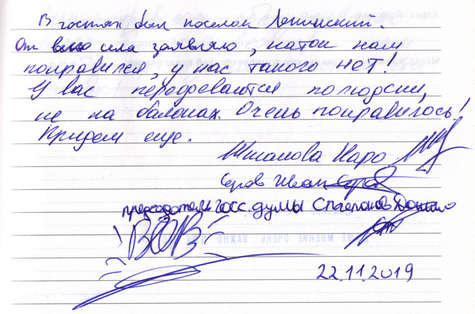 В гостях был поселок Ленинский.
От всего села заявляю, каток нам
понравился, у нас такого нет!
У вас переодеваются по людски,
не на балонах. Очень понравилось!
Придем еще.
Наро
Серов Иван
председатель госс. думы
ВОВ
22.11.2019